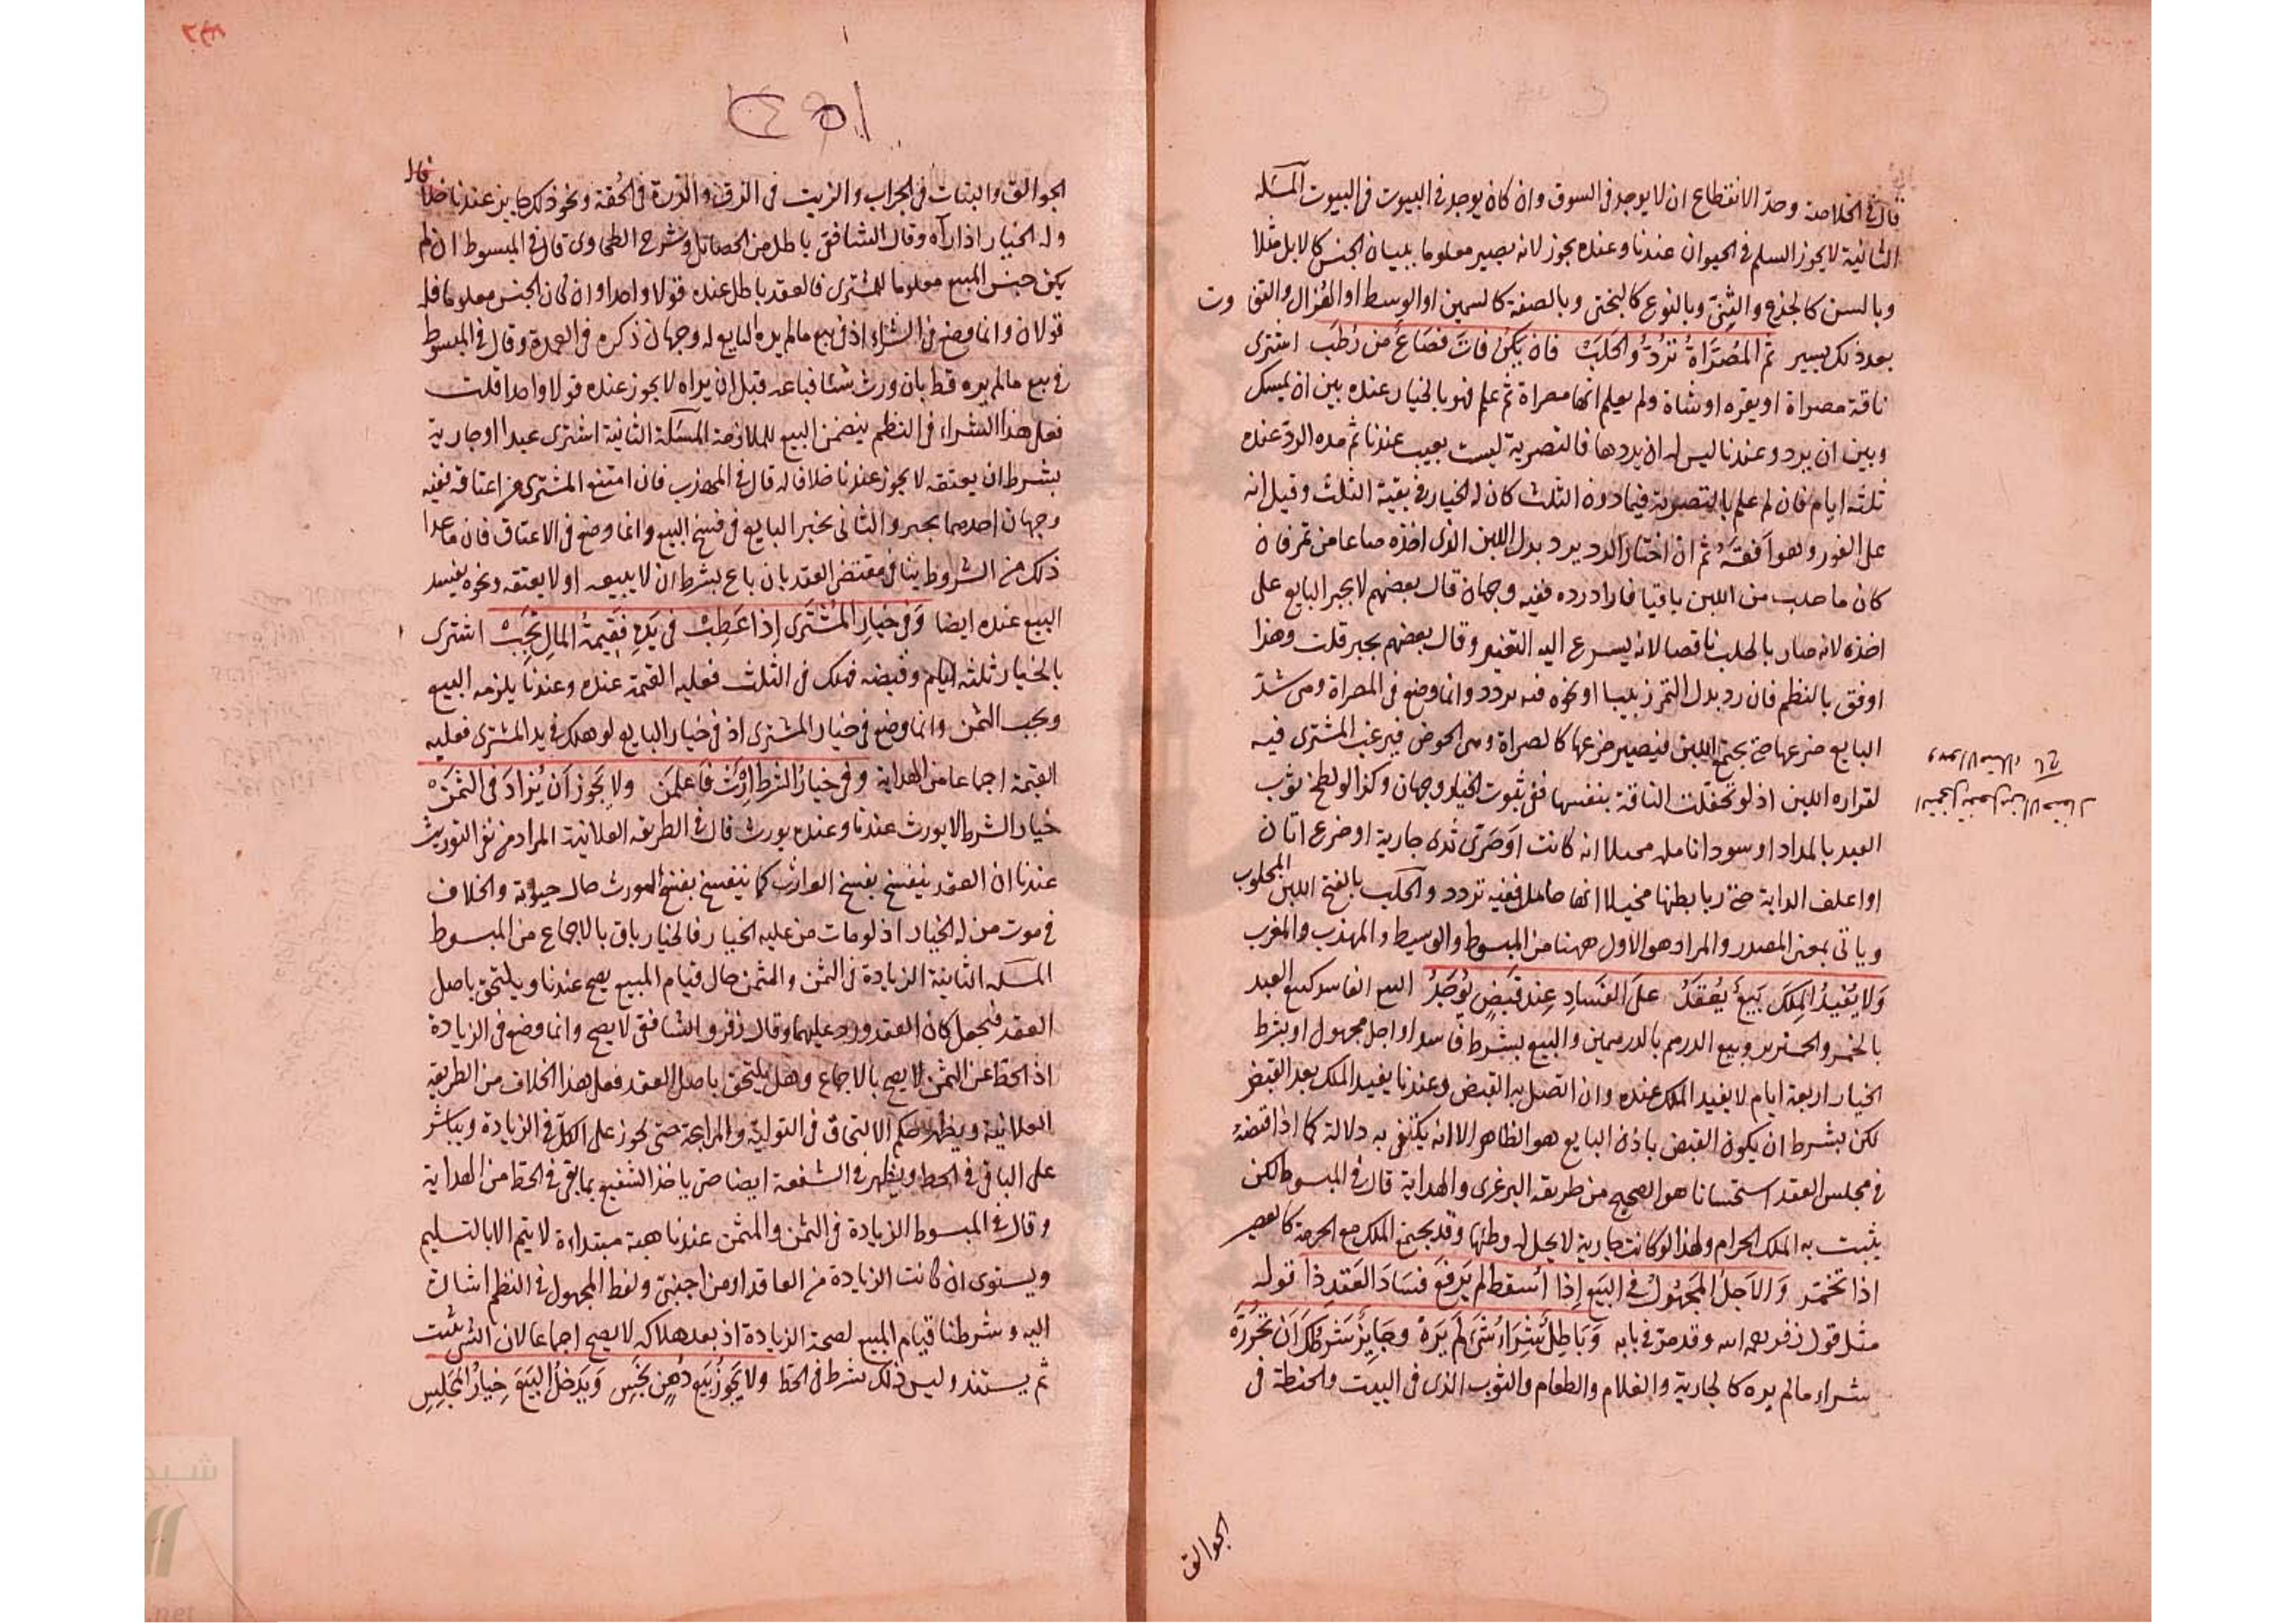 قال في الخلاصة وحد الانقطاع ان لا يوجد في السوق وان كان يوجد في البيوت في البيوت المسئلة
الثانية لا يجوز السلم في الحيوان عندنا وعنده يجوز لانه يصير معلوما ببيان الجنس كالابل مثلا
وبالسن كالجذع والثني وبالنوع كالبختي وبالصفة كالسمين او الوسط او الهزال والتفاوت
بعد ذلك يسير ثم المُصَرَّاةُ تُرَدُّ والحَلَبْ فان يَكُنْ فاتَ فصَاعٌ من رُطَبْ اشترى
ناقة مصراة او بقرة او شاة ولم يعلم انها مصراة ثم علم فهو بالخيار عنده بين ان يمسك
وبين ان يرد وعندنا ليس له ان يردها فالتصرية ليست بعيب عندنا ثم مده الرد عنده
ثلثة ايام فان لم علم بالتصرية فيما دون الثلث كان له الخيار في بقية الثلث وقيل انه
على الفور وهو افقه ثم ان اختار الرد يرد بدل اللبن الذي اخذه صاعا من تمر فان
كان ما حلب من اللبن باقيا فاراد رده ففيه وجهان قال بعضهم لا يجبر البايع على
اخذه لانه صار بالحلب ناقصا لانه يسرع اليه التغير وقال بعضهم يجبر قلت وهذا
اوفق بالنظم فان رد بدل التمر زبيبا او نحوه فيه تردد وانما وضع في المصراة وهي شد
البايع ضرعها حتى يجتمع اللبن فيصير ضرعها كالصراة وهي الحوض فيرغب المشتري فيه
لغزاره اللبن اذ لو تحفلت الناقة بنفسها ففي ثبوت الخيار وجهان وكذا لو لطخ ثوب
العبد بالمداد او سود انامله مخيلا انه كاتب او صرى ثدى جارية او ضرع اتان
او اعلف الدابة حتى ربا بطنها مخيلا انها حامل ففيه تردد والحلب بالفتح اللبن المحلوب
وياتي بمعنى المصدر والمراد هو الاول ههنا من المبسوط والوسيط والمهذب والمغرب
وَلا يُفيدُ المِلكَ بَيعٌ يُعقَدُ على الفَسادِ عِند قَبضٍ يُوجَدُ البيع الفاسد كبيع العبد
بالخمر والخنزير وبيع الدرهم بالدرهمين والبيع بشرط فاسد او اجل مجهول او بشرط
الخيار اربعة ايام لا يفيد الملك عنده وان اتصل به القبض وعندنا يفيد الملك بعد القبض
لكن بشرط ان يكون القبض باذن البايع هو الظاهر الا انه يكتفى به دلالة كما اذا قبضه
في مجلس العقد استحسانا هو الصحيح من طريقه البرغري والهداية قال في المبسوط لكن
يثبت به الملك الحرام ولهذا لو كانت جارية لا يحل له وطئها وقد يجتمع الملك مع الحرمة كالعصير
اذا تخمر وَالاجَلُ المَجهُولُ في البَيع إذا أسقط لم يَرفع فسَادَ العَقد ذا قوله
مثل قول زفر رحمه الله وقد مر في بابه وَبَاطِلٌ شِرَاءُ شَىءٍ لَم يَرَهْ وجَايِزٌ شَرطُكَ أَن تُحَرِّرَهْ
شراء ما لم يره كالجارية والغلام والطعام والثوب الذي في البيت والحنطة في
الجوالق
الجوالق والبنات في الجراب والزيت في الزق والذرة في الحقة ونحو ذلك جايز عندنا خلافا له
وله الخيار اذا رآه وقال الشافعي باطل من الحصائل وشرح الطحاوي قال في المبسوط ان لم
يكن جنس المبيع معلوما للمشتري فالعقد باطل عنده قولا واحدا وان كان الجنس معلوما فله
قولان وانما وضع في الشراء اذ في بيع ما لم يره البايع له وجهان ذكره في العمدة وقال في المبسوط
في بيع ما لم يره قط بان ورث شئا فباعه قبل ان يراه لا يجوز عنده قولا واحدا قلت
فعلى هذا الشراء في النظم يتضمن البيع للملازمة المسئلة الثانية اشترى عبدا او جارية
بشرط ان يعتقه لا يجوز عندنا خلافا له قال في المهذب فان امتنع المشتري من اعتاقه ففيه
وجهان احدهما يجبر والثاني يخير البايع في فسخ البيع وانما وضع في الاعتاق فان ما عدا
ذلك من الشروط ينافي مقتضى العقد بان باع بشرط ان لا يبيعه او لا يعتقه ونحوه يفسد
البيع عنده ايضا وَفي خيارِ المُشتَري إذا عَطِبْ في يَدِهِ فَقِيمةُ المالِ تَجِبْ اشترى
بالخيار ثلثة ايام وقبضه فهلك في الثلث فعليه القيمة عنده وعندنا يلزمه البيع
ويجب الثمن وانما وضع في خيار المشتري اذ في خيار البايع لو هلك في يد المشتري فعليه
القيمة اجماعا من الهداية وفي خيار الشرط ارث فاعلمن ولا يَجُوز أَن يُزادَ في الثَمَنْ
خيار الشرط لا يورث عندنا وعنده يورث قال في الطريقه العلائية المراد من نفي التوريث
عندنا ان العقد ينفسخ بفسخ الوارث كما ينفسخ بفسخ المورث حال حيوته والخلاف
في موت من له الخيار اذ لو مات من عليه الخيار فالخيار باق بالاجماع من المبسوط
المسئلة الثانية الزيادة في الثمن والمثمن حال قيام المبيع يصح عندنا ويلتحق باصل
العقد فيجعل كان العقد ورد عليهما وقال زفر والشافعي لا يصح وانما وضع في الزيادة
اذ الحط عن الثمن لا يصح بالاجماع وهل يلتحق باصل العقد فعلى هذا الخلاف من الطريقه
العلائية ويظهر حكم الالتحاق في التولية والمرابحة حتى تجوز على الكل في الزيادة ويباشر
على الباقي في الحط ويظهر في الشفعة ايضا حتى ياخذ الشفيع بما بقي في الحط من الهداية
وقال في المبسوط الزيادة في الثمن والمثمن عندنا هبة مبتداءة لا يتم الا بالتسليم
ويستوى ان كانت الزيادة من العاقد او من اجنبي ولفظ المجهول في النظم اشارة
اليه وشرطنا قيام المبيع لصحة الزيادة اذ بعد هلاكه لا يصح اجماعا لان الشئ يثبت
ثم يستند وليس ذلك بشرط في الحط ولا يَجُوزُ بَيع دُهنٍ نَجِسِ وَيَدخُلُ البَيعَ خِيارُ المَجلِسِ